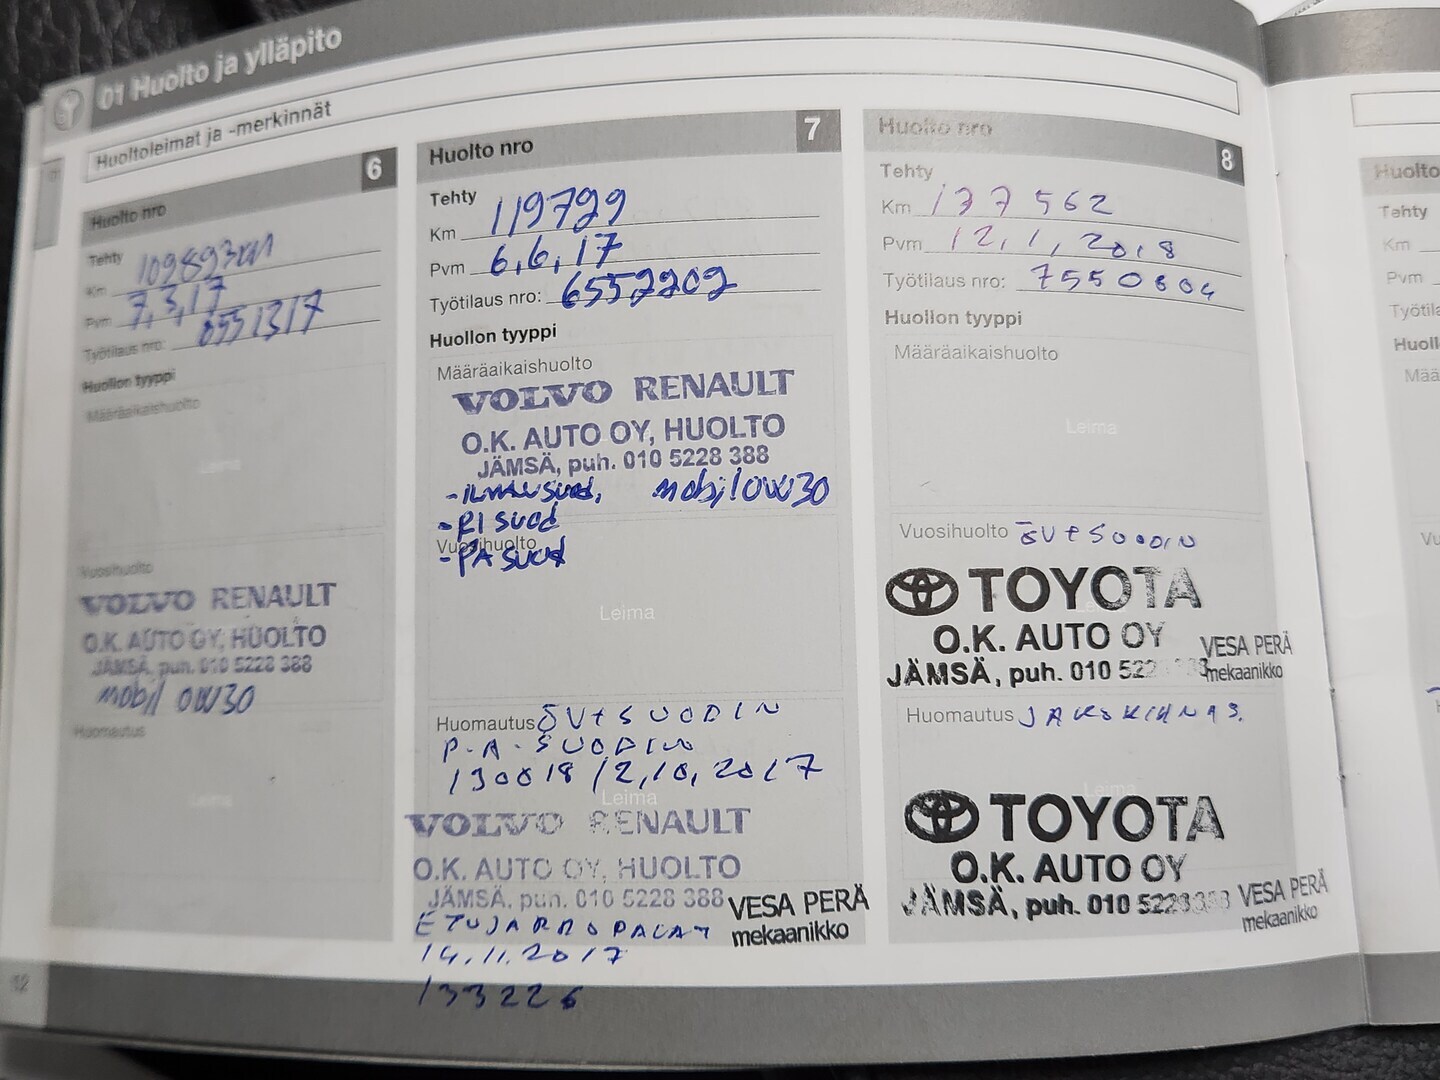 01 Huolto ja ylläpito
Huoltoleimat ja -merkinnät
Huolto nro 6
Tehty
Km 109893km
Pvm 7,3,17
Työtilaus nro: 6551317
Huollon tyyppi
Määräaikaishuolto
Leima
Vuosihuolto
VOLVO RENAULT
O.K. AUTO OY, HUOLTO
JÄMSÄ, puh. 010 5228 388
mobil 0W30
Huomautus
Leima
12
Huolto nro 7
Tehty
Km 119729
Pvm 6,6,17
Työtilaus nro: 6552202
Huollon tyyppi
Määräaikaishuolto
VOLVO RENAULT
O.K. AUTO OY, HUOLTO
JÄMSÄ, puh. 010 5228 388
-ILMANSUOD, mobil 0W30
-RI SUOD
Vuosihuolto
-PA SUOD
Leima
Huomautus ÖV+SUODIN
P-A-SUODIN
130018 / 2,10,2017
Leima
VOLVO RENAULT
O.K. AUTO OY, HUOLTO
JÄMSÄ, puh. 010 5228 388
VESA PERÄ
mekaanikko
ETUJARRUPALAT
14.11.2017
133226
Huolto nro 8
Tehty
Km 137562
Pvm 12,1,2018
Työtilaus nro: 7550804
Huollon tyyppi
Määräaikaishuolto
Leima
Vuosihuolto ÖV+SUODIN
TOYOTA
O.K. AUTO OY
JÄMSÄ, puh. 010 522 38
VESA PERÄ
mekaanikko
Huomautus JAKOHIHNAS.
Leima
TOYOTA
O.K. AUTO OY
JÄMSÄ, puh. 010 5228388
VESA PERÄ
mekaanikko
Huolto
Tehty
Km
Pvm